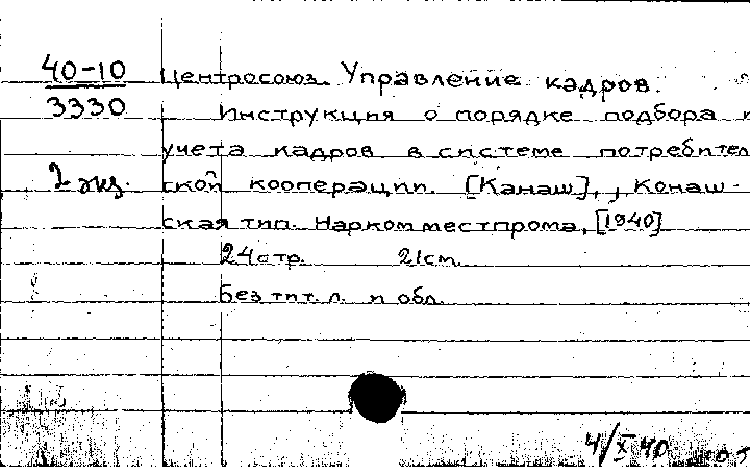 40-10
3330
2 экз.
Центросоюз. Управление кадров.
Инструкция о порядке подбора и
учета кадров в системе потребитель
ской кооперации. [Канаш], , Конаш-
ская тип. Наркомместпрома, [1940]
24 стр. 21 cm.
Без тит. л. и обл.
4/X 40